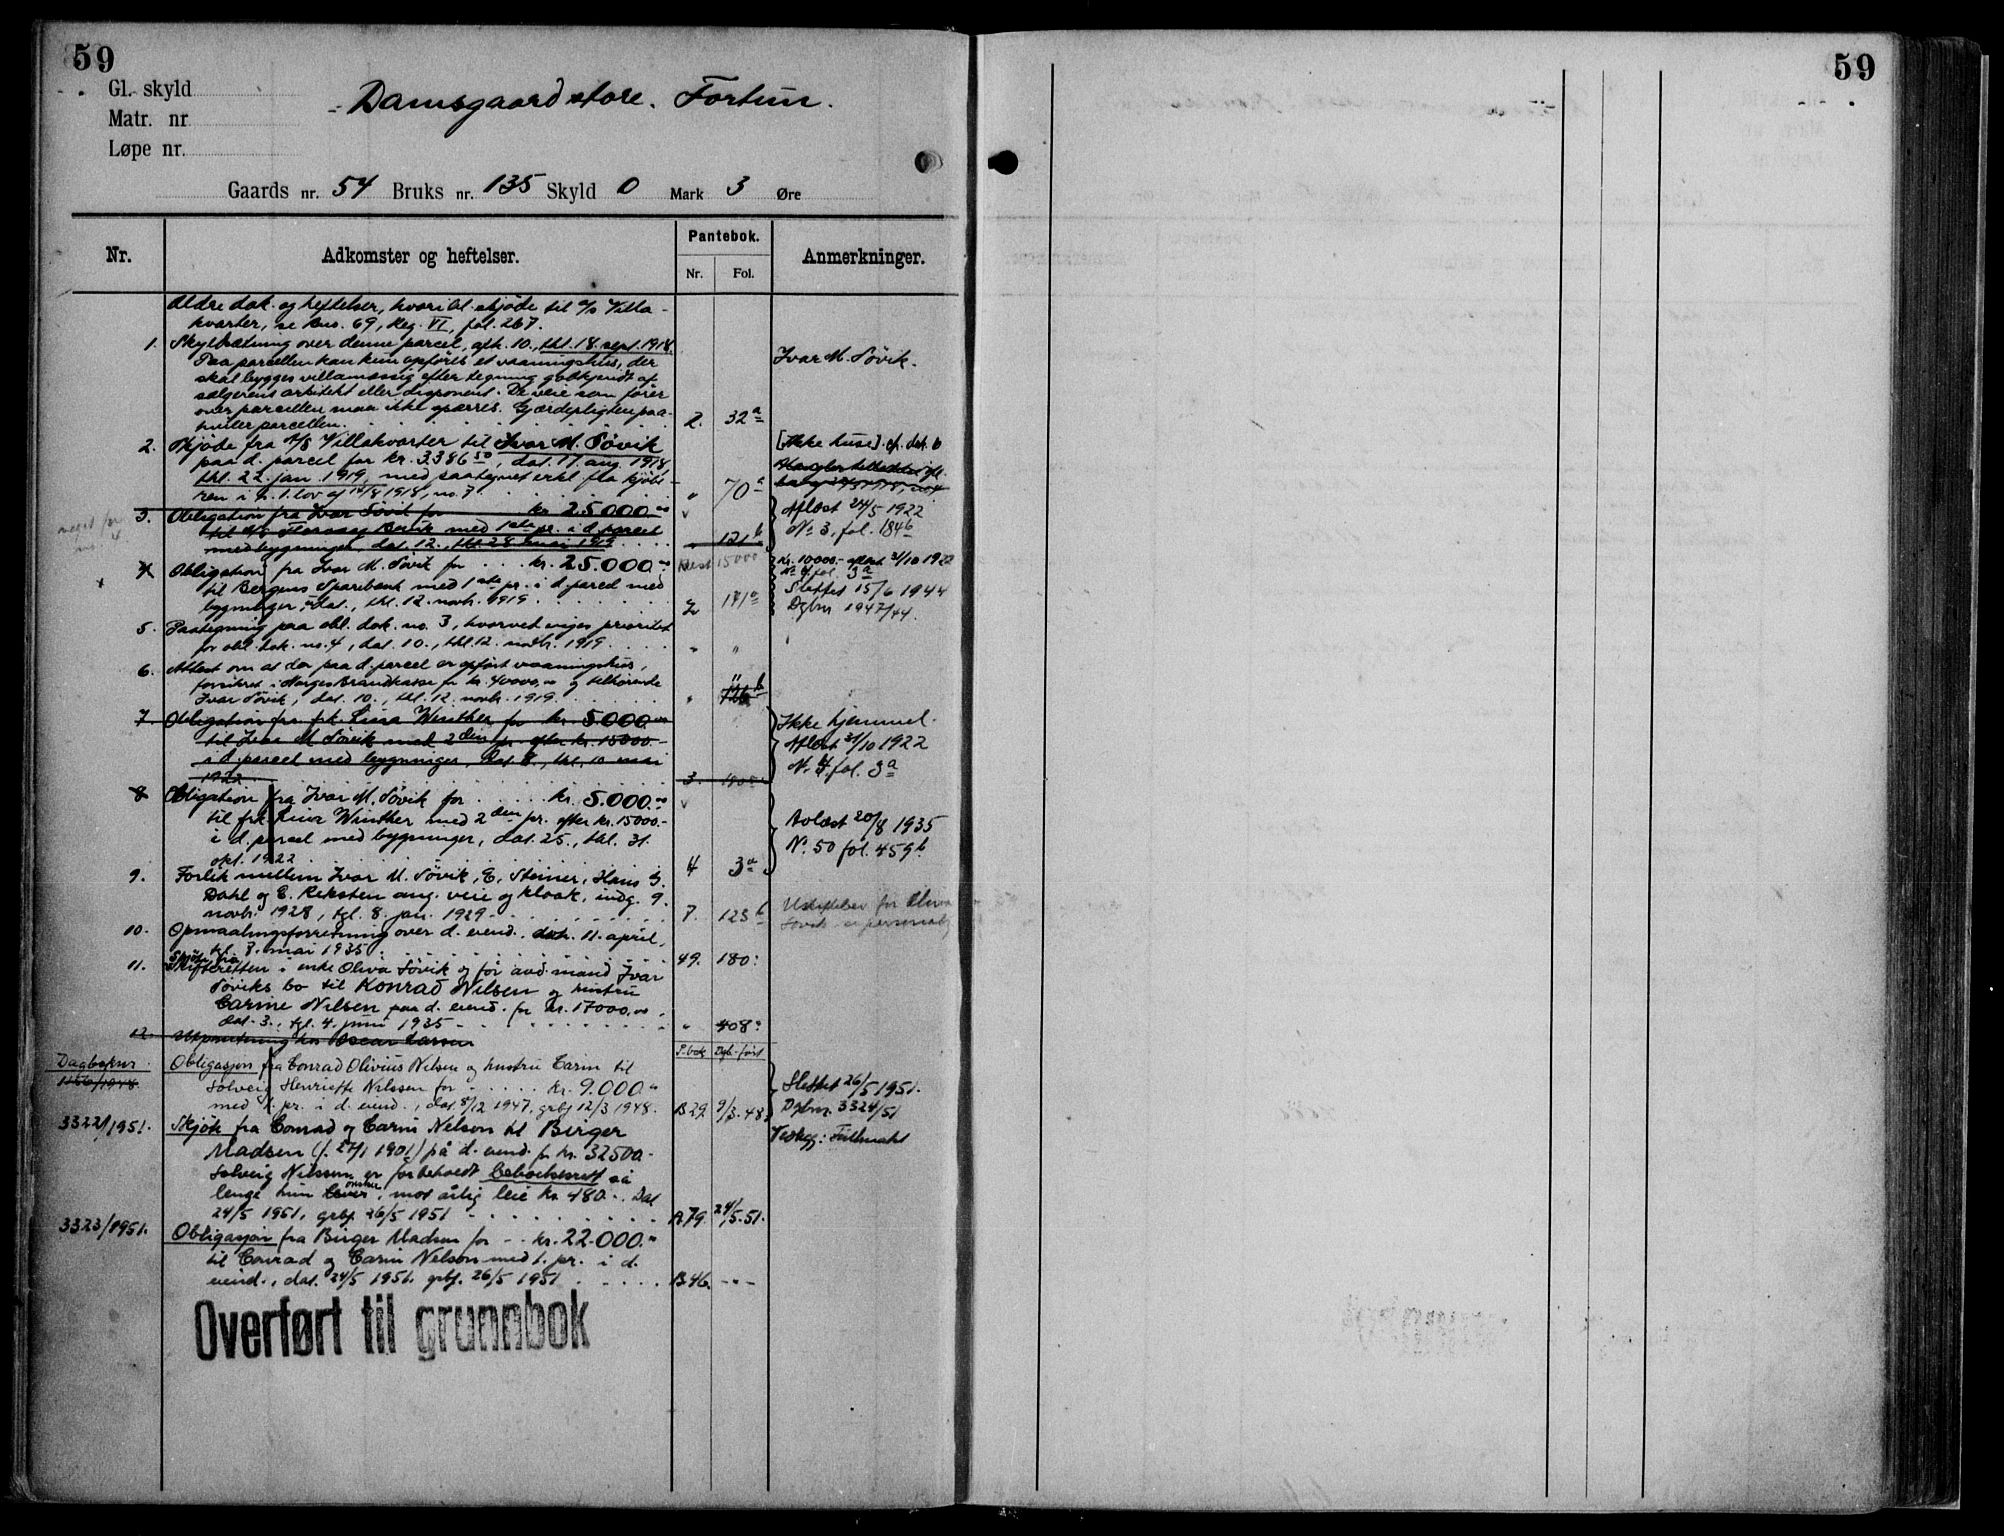 59
59
Gl. skyld
Damsgaard store. Fortun.
Matr. nr
Løpe nr.
Gaards nr. 54 Bruks nr. 135 Skyld 0 Mark 3 Øre
Nr. Adkomster og heftelser. Pantebok. Anmerkninger.
Nr. Fol.
Ældre dok. og heftelser, hvoribl. skjøde til A/S Villa-
kvarter, se bno. 69, Reg. VI, fol. 267.
1. Skyldsætning over denne parcel, afh. 10., thl. 18. sept. 1918.
Paa parcellen kan kun opføres et vaaningshus, der
Ivar M. Søvik.
skal bygges villamæssig efter tegning godkjendt af
sælgerens arkitekt eller disponent. De veie som fører
over parcellen maa ikke spærres. Gjærdepligten paa-
hviler parcellen. 2. 32a
2. Skjøde fra A/S Villakvarter til Ivar M. Søvik [Ikke huse] cf. dok. 6
paa d. parcel for kr. 3386.50, dat. 17. aug. 1918,
thl. 22. jan. 1919, med paategnet erkl. fra kjøbe-
ren i h. t. lov af 14/8 1918, no. 3 " 70a
3. Obligation fra Ivar Søvik for kr. 25.000.00 Aflæst 24/5 1922
til A/S Bank med 1ste pr. i d. parcel No 3, fol. 184b
med bygninger, dat. 12., thl. 28. mai 1919. 121b
4. Obligation fra Ivar M. Søvik for kr. 25.000.00 Rest 15000 kr. 10000.- aflæst 31/10 1922
No 4 fol. 3a
til Bergens Sparebank med 1ste pr. i d. parcel med Slettet 15/6 1944
bygninger, dat., thl. 12. novbr. 1919 2 171a Dgbnr. 1947/44.
5. Paategning paa obl. dok. no. 3, hvorved viges prioritet
for obl. dok. no. 4, dat. 10., thl. 12. novbr. 1919. " "
6. Attest om at der paa d. parcel er opført vaaningshus,
forsikret i Norges Brandkasse for kr. 40000,00 og tilhørende
Ivar Søvik, dat. 10., thl. 12. novbr. 1919. "
7. Obligation fra frk. Lina Winther for kr. 5000.00 Ikke hjemmel.
til Ivar M. Søvik med 2den pr. efter kr. 15000.- Aflæst 31/10 1922
i d. parcel med bygninger, dat. 8., thl. 10. mai No. 4, fol. 3a
1922. 3.
8 Obligation fra Ivar M. Søvik for kr. 5.000.00
til frk. Lina Winther med 2den pr. efter kr. 15000.- Avlæst 20/8 1935
i d. parcel med bygninger, dat. 25., thl. 31. No. 50 fol. 459b
okt. 1922 4 3a
9. Forlik mellem Ivar M. Søvik, E. Steiner, Hans G.
Dahl og E. Reksten ang. veie og kloak, indg. 9.
novbr. 1928, tgl. 8. jan. 1929 7. 123b
10. Opmaalingsforretning over d. eiend., dat. 11. april,
tgl. 8. mai 1935 49. 180
11. Skjøte fra
Skifteretten i enke Oliva Søvik og før avd. mand Ivar
Søviks bo til Konrad Nilsen og hustru
Carine Nilsen paa d. eiend. for kr. 17000,00,
dat. 3., tgl. 4. juni 1935 " 408
12. Oscar Larsen
P.bok Dgb.-ført
Dagboknr Obligasjon fra Conrad Olivius Nilsen og hustru Carin til
Solveig Henriette Nilssen for kr. 9.000.- Slettet 26/5 1951.
med 1. pr. i d. eiend., dat. 8/12 1947, grbf. 12/3 1948. B29. 9/3.48. Dgbnr. 3324/51
3322/1951. Skjøte fra Conrad og Carin Nelson til Birger
Madsen (f. 27/1 1901) på d. eiend. for kr. 32500.- Vedlegg: Fullmakt
Solveig Nilssen er forbeholdt beboelsesrett så
lenge hun ønsker, mot årlig leie kr. 480.-. Dat.
24/5 1951, grbf. 26/5 1951 A79. 24/5-51.
3323/1951. Obligasjon fra Birger Madsen for kr. 22.000.-
til Conrad og Carin Nelson med 1. pr. i d.
eiend., dat. 24/5 1951. grbf. 26/5 1951 B46. - " -
Overført til grunnbok